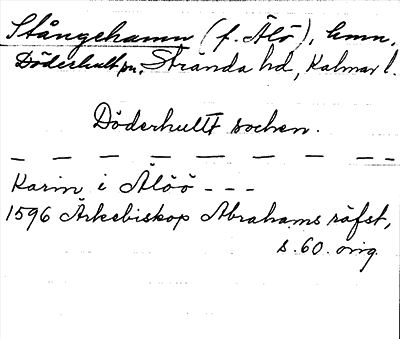 Stångehamn (f. Älö), hmn,
Döderhults sn, Stranda hd, Kalmar l.
Döderhults socken.
— — — — — — — —
Karin i Älöö - - -
1596 Ärkebiskop Abrahams räfst,
s. 60. orig.